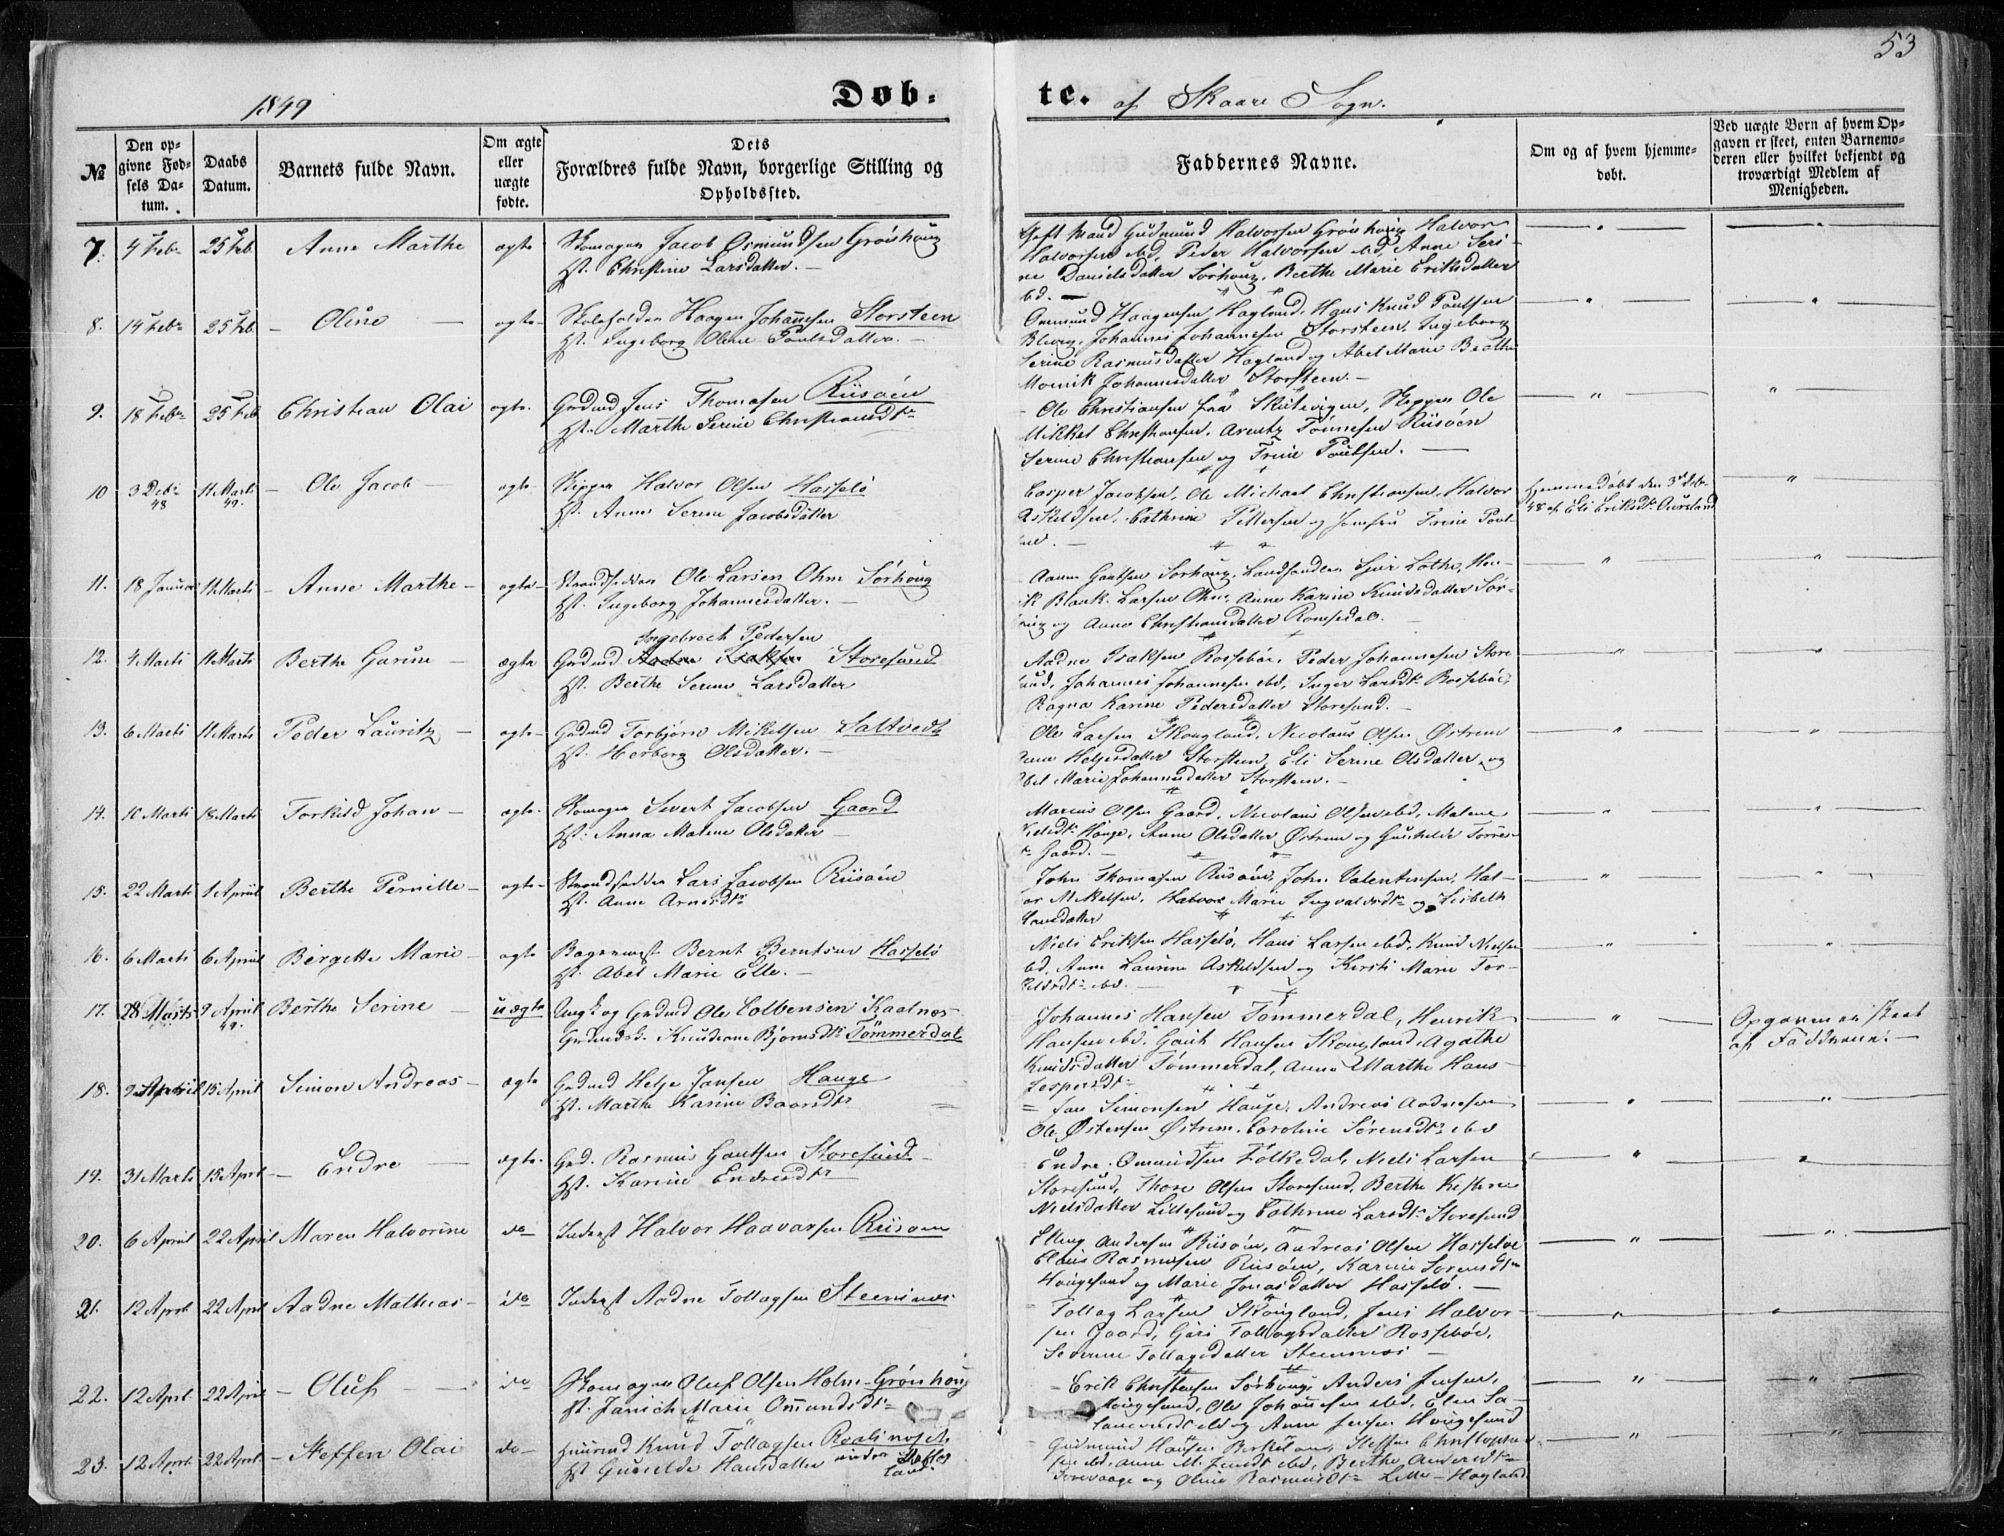 53
1849
Døb-
te. af Skaare Sogn.
№
Den op-
givne Fød-
sels Da-
tum.
Daabs
Datum.
Barnets fulde Navn.
Om ægte
eller
uægte
fødte.
Dets
Forældres fulde Navn, borgerlige Stilling og
Opholdssted.
Faddernes Navne.
Om og af hvem hjemme-
døbt.
Ved uægte Børn af hvem Op-
gaven er skeet, enten Barnemo-
deren eller hvilket bekjendt og
troværdigt Medlem af
Menigheden.
7. 4 Febr 25 Feb Anne Marthe ægte Skomager Jacob Osmundsen Grønhoug
H. Christine Larsdatter.
Gift Mand Gudmund Halvorsen Grønhoug Halvor
Halvorsen ibd, Peder Halvorsen ibd, Anne Seri-
ne Danielsdatter Sørhoug, Berthe Marie Eriksdatter
ibd.
8. 14 Febr 25 Feb. Oline ægte Skoleholder Haagen Johannesen Storsteen
H. Ingeborg Oline Poulsdatter.
Ommund Haagensen Hagland, Hans Knud Poulsen
Johannes Johannesen Storsteen, Ingeborg
Serine Rasmusdatter Hagland og Abel Marie Berthe
Johannesdatter Storsteen.
9. 18 Febr 25 Feb Christian Olai ægte. Grdmd Jens Thomasen Riisøen
H. Marthe Serine Christiansdtr
Ole Christiansen fra Skutevigen, Skipper Ole
Mikkel Christiansen, Arentz Tønnesen Riisøen
Serine Christiansen og Trine Poulsen.
10 3 Debr 48 11 Marts 49. Ole Jacob ægte Skipper Halvor Olsen Hasselø
H. Anne Serine Jacobsdatter
Casper Jacobsen, Ole Michael Christiansen, Halvor
Askeldsen, Cathrine Pettersen og Jomfru Trine Poul-
sen.
Hjemmedøbt den 3 Debr
48 af Eli Eriksdtr Aursland
11. 18 Januar 11 Marts Anne Marthe ægte Strandsidder Ole Larsen Ohm Sørhoug
H. Ingeborg Johannesdatter.
Aanen Gautsen Sørhoug, Landhandler Sjur Lothe, Hen-
ik Blank Larsen Ohm, Anne Karine Knudsdatter Sør-
houg og Anne Christiansdatter Romsedal.
12. 4 Marts 11 Marts Berthe Gurine ægte Ingebrech Pedersen
Grdmd Aadne Isaksen Storesund
H. Berthe Serine Larsdatter
Aadne Isaksen Rossebøe, Peder Johannesen Store
sund, Johannes Johannesen ibd, Inger Larsdtr Rossebøe,
Ragna Karine Pedersdatter Storesund.
13. 6 Marts 11 Marts Peder Lauritz ægte Grdmd Torbjørn Mikelsen Saltvedt
H. Herborg Olsdatter.
Ole Larsen Skougland, Nicolaus Olsen Østrem
Helgesdatter Storsteen, Eli Serine Olsdatter og
Abel Marie Johannesdatter Storsteen.
14. 10 Marts 18 Marts Torkild Johan ægte Skomager Sivert Jacobsen Gaard
H. Anna Malene Olsdatter
Marius Olsen Gaard, Nicolaus Olsen ibd, Malene
Hauge, Anne Olsdatter Østrem og Gunhilde Torres-
dtr Gaard.
15. 22 Marts 1 April Berthe Pernille ægte Strandsidder Lars Jacobsen Riisøen
H. Anne Arnesdtr
John Thomasen Riisøen, John Valentinsen, Hal-
vor Mikelsen, Marie Ingvalsdtr og Lisbeth
Hansdatter
16. 6 Marts 6 April Birgette Marie ægte Bagermest Bernt Berntsen Hasselø
H. Abel Marie Elle.
Niels Eriksen Hasselø, Hans Larsen ibd, Knud Nielsen
ibd, Anne Laurine Askeldsen og Kirsti Marie Tor-
kelsdtr ibd.
17. 28 Marts 9 April 49. Berthe Serine uægte Ungk og Grdmd Ole Colbensen Kaatnæs
Knudeane Bjørnsdtr Tømmerdal
Johannes Hansen Tømmerdal, Henrik
Hansen ibd, Gaut Hansen Skougland, Agathe
Knudsdatter Tømmerdal, Anne Marthe Hans-
Jespersdtr
Opgaven er skeet
af Fadderne.
18. April 15 April Simon Andreas ægte Grdmd Helge Jansen Hauge
H. Marthe Karine Baardsdtr
Jan Simonsen Hauge, Andreas Aadnesen
Ole Østensen Østrem, Caroline Sørensdtr ibd
19. 31 Marts 15 April Endre ægte. Grd. Rasmus Gautsen Storesund
H. Karine Endresdtr
Endre Omundsen Følkedal, Niels Larsen
Storesund, Thore Olsen Storesund, Berthe Kistine
Nielsdatter Lillesund og Cathrine Larsdtr Storesund
20. 6 April 22 April Maren Halvorine do Inderst Halvor Haavarsen Riisøen
Elling Andersen Riisøen, Andreas Olsen Hasseløe
Claus Rasmusen Riisøen, Karine Sørensdtr
Hougesund og Marie Jonasdatter Hasselø.
21. 12 April 22 April Aadne Mathias do Inderst Aadne Tollagsen Steensnæs
Tollag Larsen Skougland, Jens Halvor-
sen Gaard, Guri Tollagsdatter Rossebøe,
Severine Tollagsdatter Steensnæs
22. 12 April. 22 April Oluf do Skomager Oluf Olsen Holm Grønhoug
H. Janich Marie Omundsdtr
Erik Christensen Sørhoug, Anders Jensen,
Hougesund, Ole Johannesen ibd, Elen Sa-
ibd og Anne Jensen Hougesund
23. 12 April. 22 April. Steffen Olai do Huusmd Knud Tollagsen Raglinøset
H. Gunnilde Hansdatter under
land.
Gudmund Hansen Steffen Christophersen
ibd, Anne M. ibd, Berthe Andersdtr
og Oline Rasmusdtr Lille-Hagland